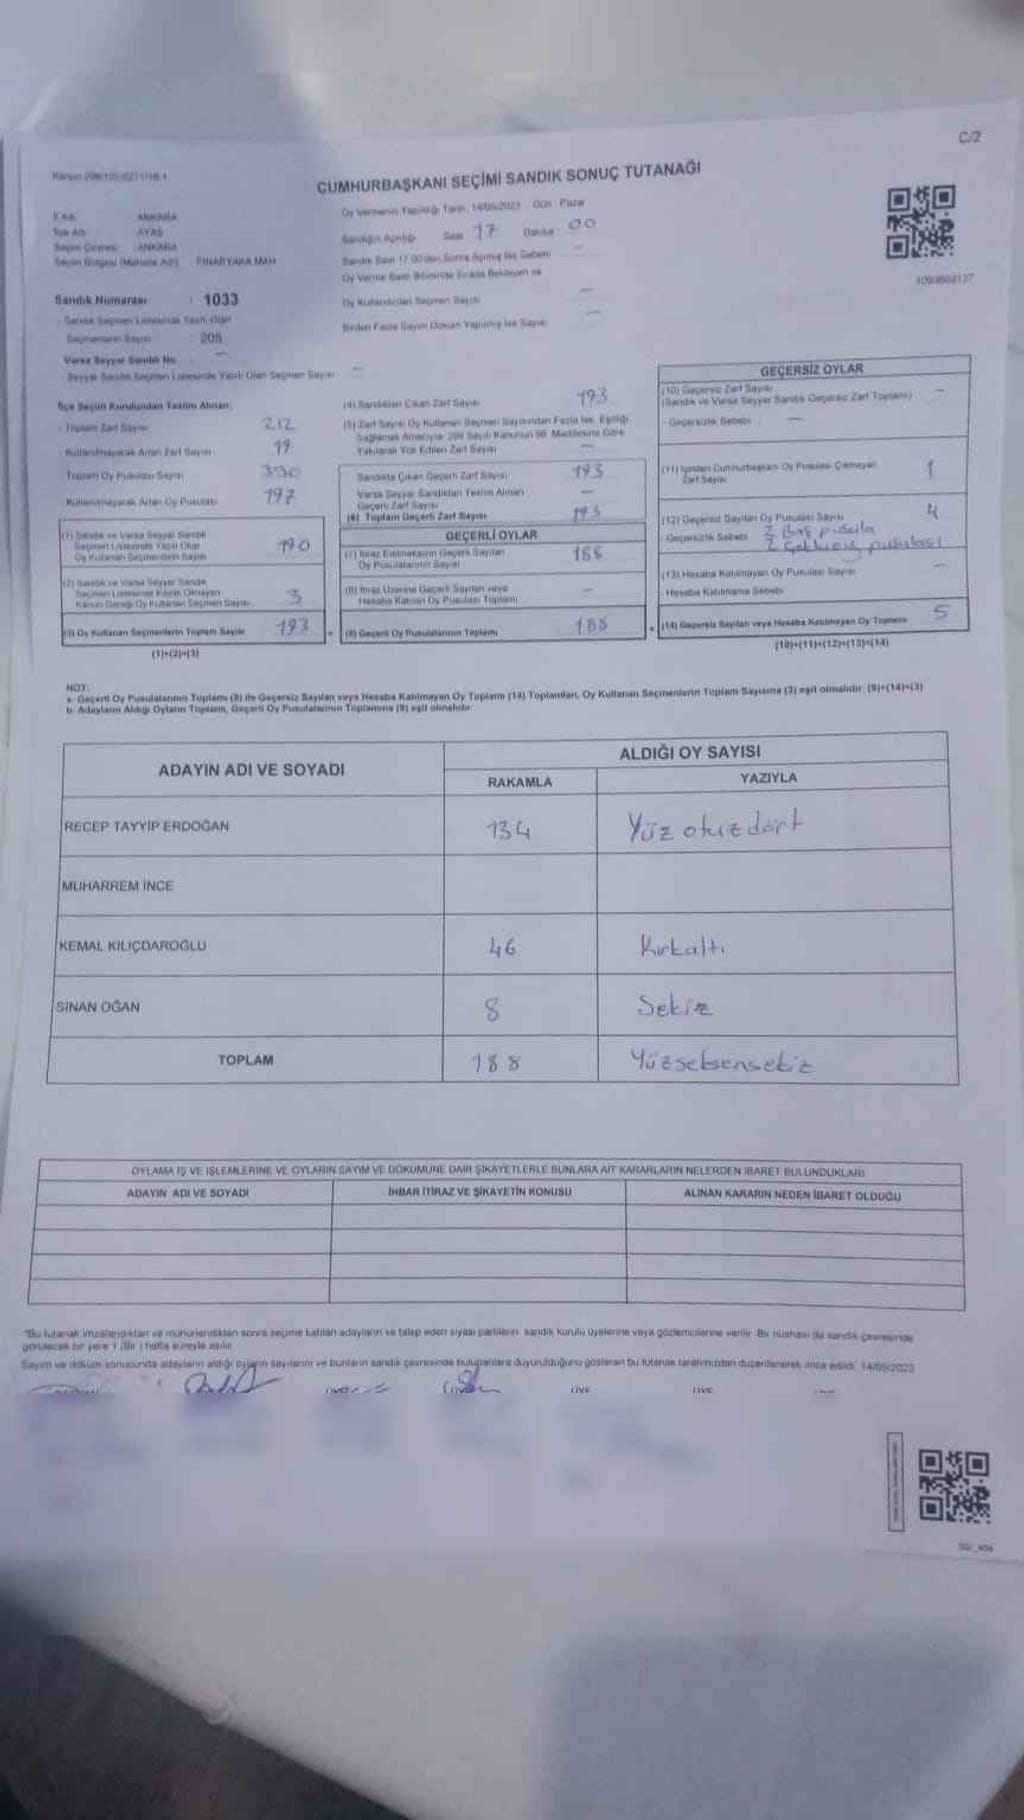 C/2
CUMHURBAŞKANI SEÇİMİ SANDIK SONUÇ TUTANAĞI
Oy Vermenin Yapıldığı Tarih: 14/05/2023 Gün: Pazar
İl Adı ANKARA
İlçe Adı AYAŞ
Seçim Çevresi ANKARA
Seçim Bölgesi (Mahalle Adı) PINARYAKA MAH
Sandığın Açıldığı Saat 17 Dakika 00
Sandık Saat 17.00'den Sonra Açılmış İse Sebebi
Oy Verme Saati Bitiminde Sırada Bekleyen ve
Oy Kullandırılan Seçmen Sayısı —
Birden Fazla Sayım Döküm Yapılmış İse Sayısı —
1093668127
Sandık Numarası : 1033
Sandık Seçmen Listesinde Yazılı Olan
Seçmenlerin Sayısı 208
Varsa Seyyar Sandık No —
Seyyar Sandık Seçmen Listesinde Yazılı Olan Seçmen Sayısı —
İlçe Seçim Kurulundan Teslim Alınan;
Toplam Zarf Sayısı 212
Kullanılmayarak Artan Zarf Sayısı 19
Toplam Oy Pusulası Sayısı 390
Kullanılmayarak Artan Oy Pusulası 197
(1) Sandık ve Varsa Seyyar Sandık
Seçmen Listesinde Yazılı Olup
Oy Kullanan Seçmenlerin Sayısı 190
(2) Sandık ve Varsa Seyyar Sandık
Seçmen Listesinde Kayıtlı Olmayan
Kanun Gereği Oy Kullanan Seçmen Sayısı 3
(3) Oy Kullanan Seçmenlerin Toplam Sayısı 193
(1)+(2)=(3)
(4) Sandıktan Çıkan Zarf Sayısı 193
(5) Zarf Sayısı Oy Kullanan Seçmen Sayısından Fazla İse, Eşitliği
Sağlamak Amacıyla 298 Sayılı Kanunun 98. Maddesine Göre
Yakılarak Yok Edilen Zarf Sayısı —
Sandıkta Çıkan Geçerli Zarf Sayısı 193
Varsa Seyyar Sandıktan Teslim Alınan
Geçerli Zarf Sayısı —
(6) Toplam Geçerli Zarf Sayısı 193
GEÇERLİ OYLAR
(7) İtiraz Edilmeksizin Geçerli Sayılan
Oy Pusulalarının Sayısı 188
(8) İtiraz Üzerine Geçerli Sayılan veya
Hesaba Katılan Oy Pusulası Toplamı —
(9) Geçerli Oy Pusulalarının Toplamı 188
GEÇERSİZ OYLAR
(10) Geçersiz Zarf Sayısı
(Sandık ve Varsa Seyyar Sandık Geçersiz Zarf Toplamı) —
Geçersizlik Sebebi —
(11) İçinden Cumhurbaşkanı Oy Pusulası Çıkmayan
Zarf Sayısı 1
(12) Geçersiz Sayılan Oy Pusulası Sayısı 4
Geçersizlik Sebebi 2 Boş pusula
2 pusulası
(13) Hesaba Katılmayan Oy Pusulası Sayısı —
Hesaba Katılmama Sebebi
(14) Geçersiz Sayılan veya Hesaba Katılmayan Oy Toplamı 5
(10)+(11)+(12)+(13)=(14)
NOT:
a- Geçerli Oy Pusulalarının Toplamı (9) ile Geçersiz Sayılan veya Hesaba Katılmayan Oy Toplamı (14) Toplamları, Oy Kullanan Seçmenlerin Toplam Sayısına (3) eşit olmalıdır. (9)+(14)=(3)
b- Adayların Aldığı Oyların Toplamı, Geçerli Oy Pusulalarının Toplamına (9) eşit olmalıdır.
ADAYIN ADI VE SOYADI ALDIĞI OY SAYISI
RAKAMLA YAZIYLA
RECEP TAYYİP ERDOĞAN 134 Yüz otuz dört
MUHARREM İNCE
KEMAL KILIÇDAROĞLU 46 Kırkaltı
SİNAN OĞAN 8 Sekiz
TOPLAM 188 Yüzseksensekiz
OYLAMA İŞ VE İŞLEMLERİNE VE OYLARIN SAYIM VE DÖKÜMÜNE DAİR ŞİKAYETLERLE BUNLARA AİT KARARLARIN NELERDEN İBARET BULUNDUKLARI
ADAYIN ADI VE SOYADI İHBAR İTİRAZ VE ŞİKAYETİN KONUSU ALINAN KARARIN NEDEN İBARET OLDUĞU
"Bu tutanak imzalandıktan ve mühürlendikten sonra seçime katılan adayların ve talep eden siyasi partilerin sandık kurulu üyelerine veya gözlemcilerine verilir. Bir nüshası da sandık çevresinde
görülecek bir yere 1 (Bir) hafta süreyle asılır.
Sayım ve döküm sonucunda adayların aldığı oyların sayılarını ve bunların sandık çevresinde bulunanlara duyurulduğunu gösteren bu tutanak tarafımızdan düzenlenerek imza edildi. 14/05/2023